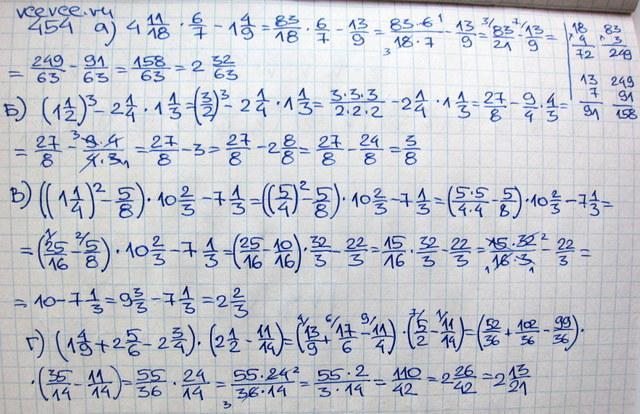 veevee.ru
454 а) 4 11/18 · 6/7 - 1 4/9 = 83/18 · 6/7 - 13/9 = 83·6/18·7 - 13/9 = 83/21 - 13/9 =
= 249/63 - 91/63 = 158/63 = 2 32/63
18 83
4 3
72 249
13 249
7 91
91 158
Б) (1 1/2)³ - 2 1/4 · 1 1/3 = (3/2)³ - 2 1/4 · 1 1/3 = 3·3·3/2·2·2 - 2 1/4 · 1 1/3 = 27/8 - 9/4 · 4/3 =
= 27/8 - 9·4/4·3 = 27/8 - 3 = 27/8 - 2 8/8 = 27/8 - 24/8 = 3/8
В) ((1 1/4)² - 5/8) · 10 2/3 - 7 1/3 = ((5/4)² - 5/8) · 10 2/3 - 7 1/3 = (5·5/4·4 - 5/8) · 10 2/3 - 7 1/3 =
= (25/16 - 5/8) · 10 2/3 - 7 1/3 = (25/16 - 10/16) · 32/3 - 22/3 = 15/16 · 32/3 - 22/3 = 15·32/16·3 - 22/3 =
= 10 - 7 1/3 = 9 3/3 - 7 1/3 = 2 2/3
Г) (1 4/9 + 2 5/6 - 2 3/4) · (2 1/2 - 11/14) = (13/9 + 17/6 - 11/4) · (5/2 - 11/14) = (52/36 + 102/36 - 99/36) ·
· (35/14 - 11/14) = 55/36 · 24/14 = 55·24/36·14 = 55·2/3·14 = 110/42 = 2 26/42 = 2 13/21